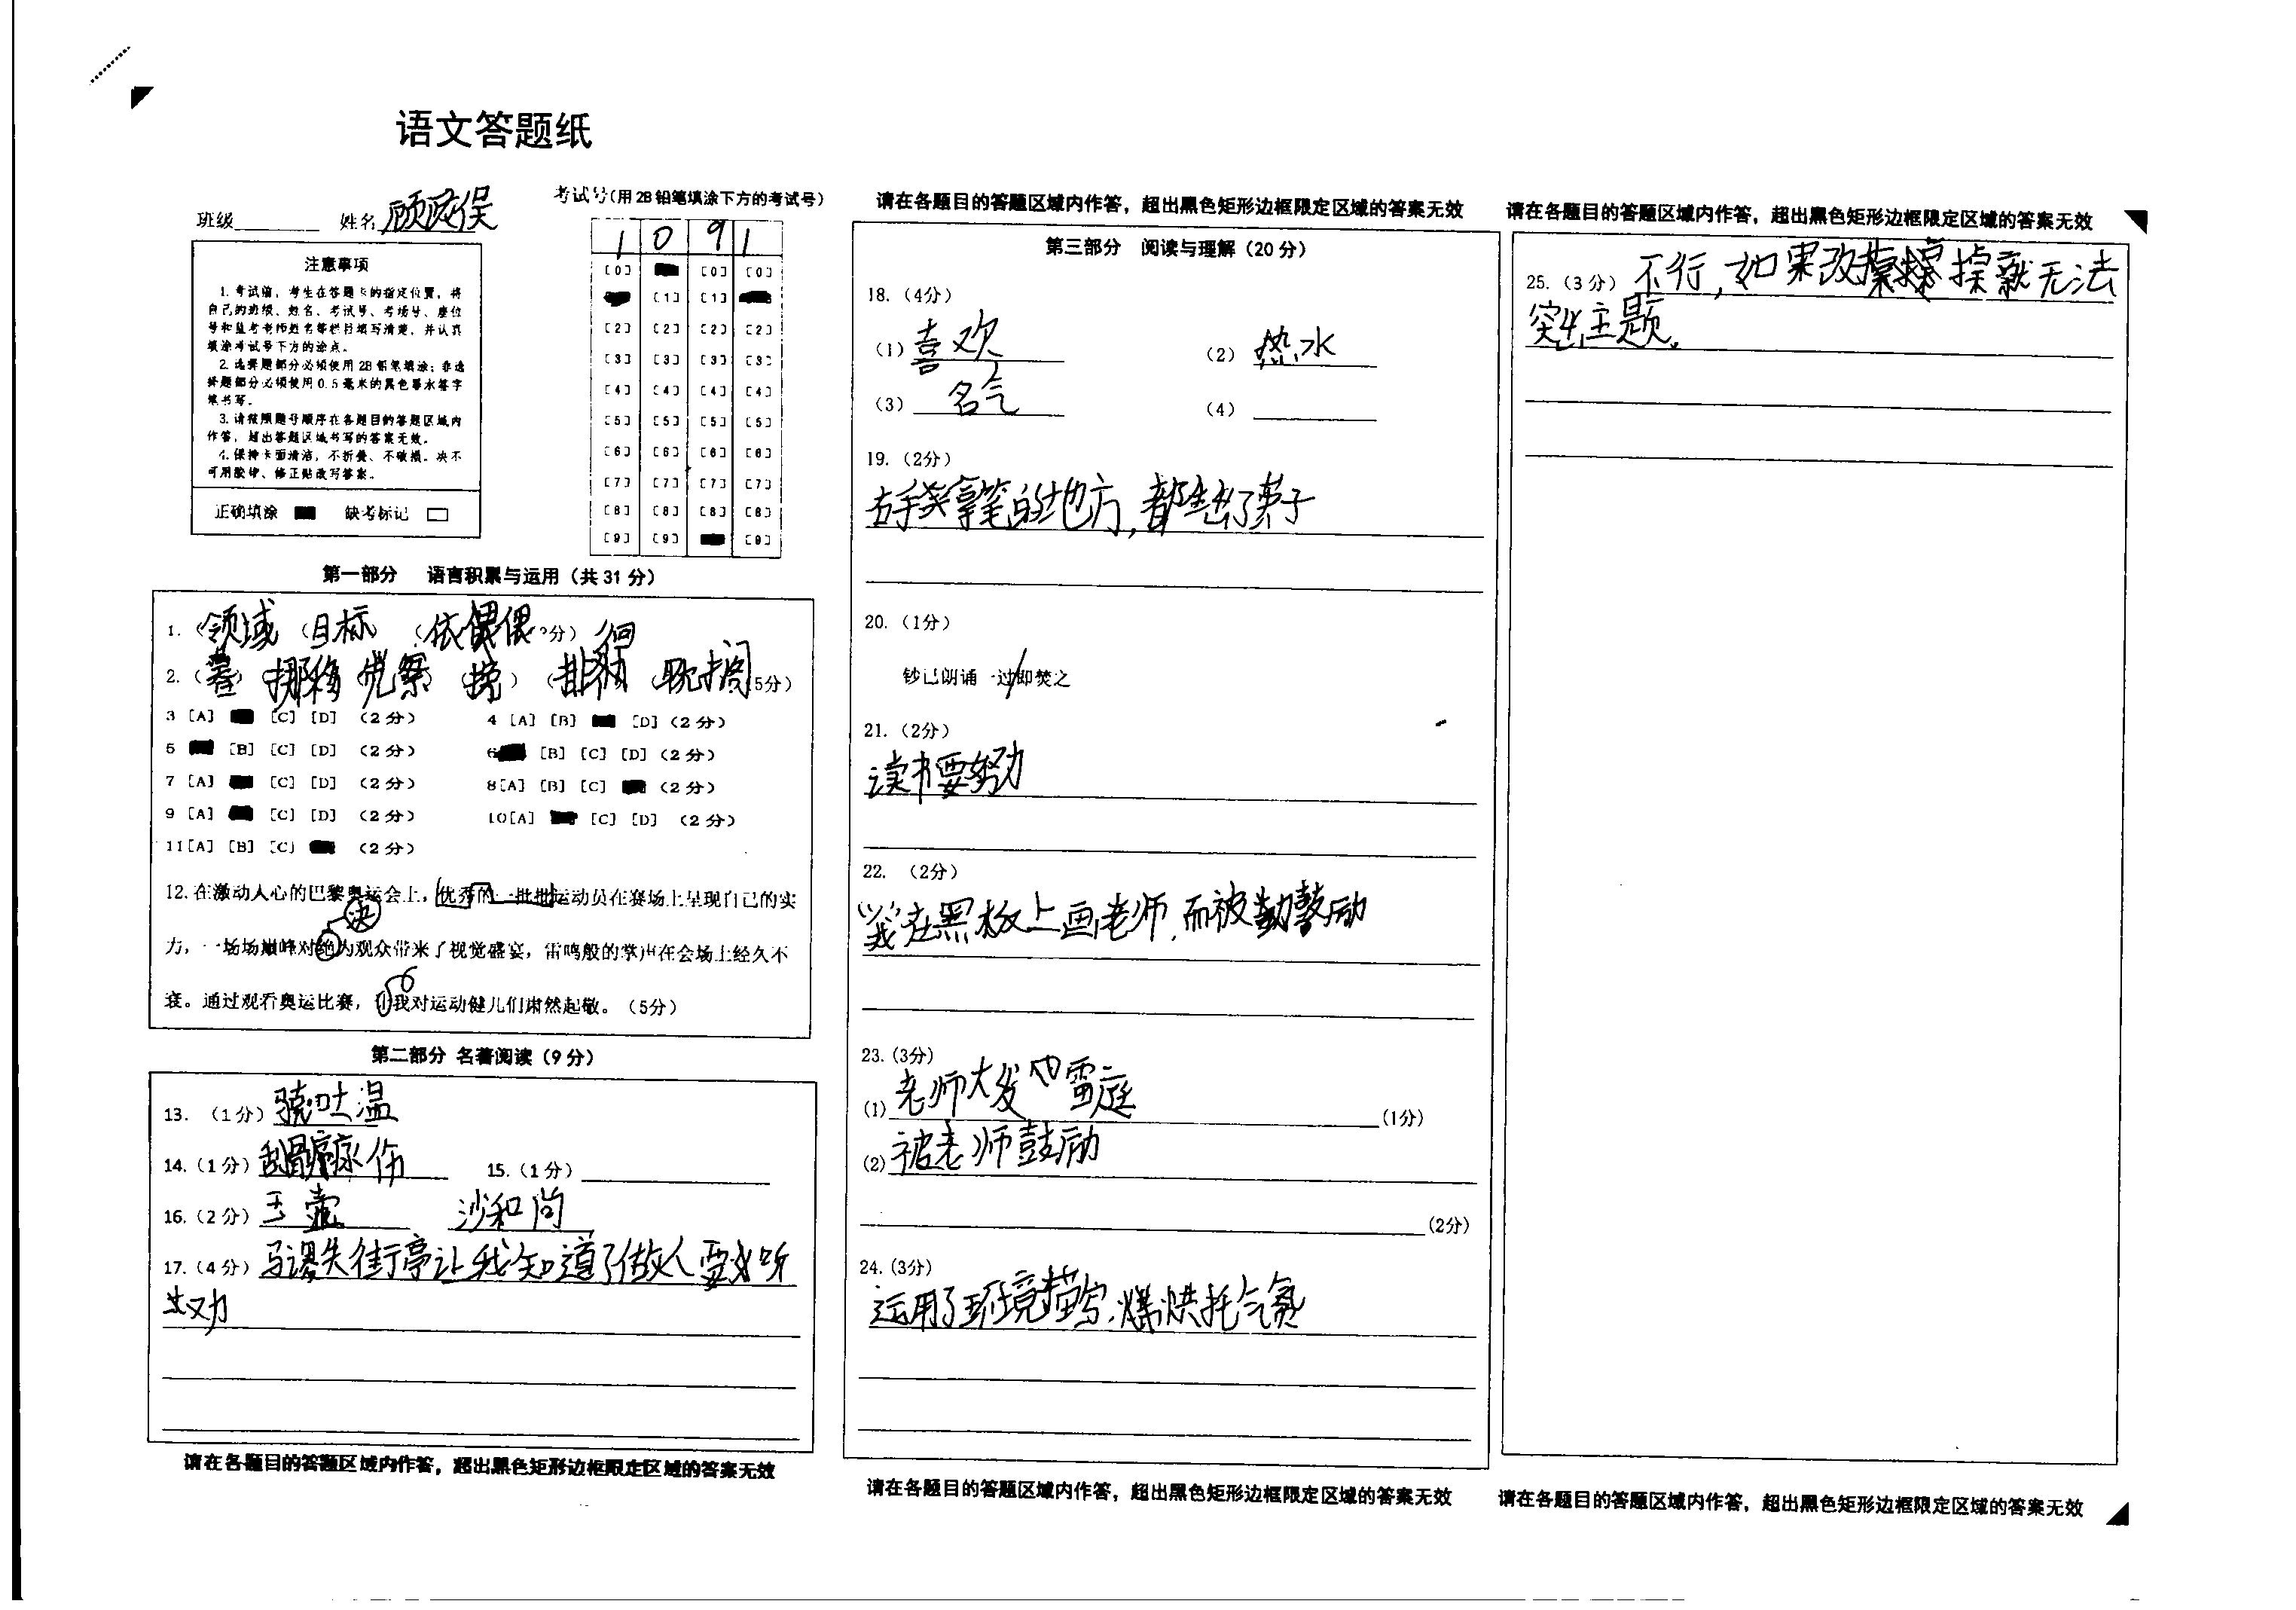 语文答题纸
班级 姓名 顾
考试号(用2B铅笔填涂下方的考试号)
1 0 9 1
[0] [0] [0]
[1] [1]
[2] [2] [2] [2]
[3] [3] [3] [3]
[4] [4] [4] [4]
[5] [5] [5] [5]
[6] [6] [6] [6]
[7] [7] [7] [7]
[8] [8] [8] [8]
[9] [9] [9]
注意事项
1.考试前,考生在答题卡的指定位置,将
自己的班级、姓名、考试号、考场号、座位
号和监考老师姓名等栏目填写清楚,并认真
填涂考试号下方的涂点。
2.选择题部分必须使用2B铅笔填涂;非选
择题部分必须使用0.5毫米的黑色墨水签字
笔书写。
3.请按照题号顺序在各题目的答题区域内
作答,超出答题区域书写的答案无效。
4.保持卡面清洁,不折叠、不破损。决不
可用胶带、修正贴改写答案。
正确填涂 缺考标记
第一部分 语言积累与运用(共31分)
1. (领域 (目标) (依偎 分)
2. ( ) (挪移 觉察) ( ) (徘徊 (耽搁 5分)
3 [A] [C] [D] (2分) 4 [A] [B] [D] (2分)
5 [B] [C] [D] (2分) 6 [B] [C] [D] (2分)
7 [A] [C] [D] (2分) 8[A] [B] [C] (2分)
9 [A] [C] [D] (2分) 10[A] [C] [D] (2分)
11[A] [B] [C] (2分)
12.在激动人心的巴黎奥运会上,优秀的一批批运动员在赛场上呈现自己的实
决
力,一场场巅峰对绝为观众带来了视觉盛宴,雷鸣般的掌声在会场上经久不
衰。通过观看奥运比赛,让我对运动健儿们肃然起敬。(5分)
第二部分 名著阅读(9分)
13. (1分) 骁吐温
14.(1分) 刮骨疗伤 15.(1分)
16.(2分) 玉 沙和尚
17.(4分) 马谡失街亭让我知道了做人要听
劝
请在各题目的答题区域内作答,超出黑色矩形边框限定区域的答案无效
请在各题目的答题区域内作答,超出黑色矩形边框限定区域的答案无效
第三部分 阅读与理解(20分)
18.(4分)
(1) 喜欢 (2) 热水
(3) 名气 (4)
19.(2分)
右手拿笔的地方,都生出了茧子
20.(1分)
钞已朗诵一过/即焚之
21.(2分)
读书要努力
22. (2分)
“我”在黑板上画老师,而被鼓励
23.(3分)
(1) 老师大发 雷庭 (1分)
(2) 被老师鼓励
(2分)
24.(3分)
运用了环境描写,烘托气氛
请在各题目的答题区域内作答,超出黑色矩形边框限定区域的答案无效
请在各题目的答题区域内作答,超出黑色矩形边框限定区域的答案无效
25.(3分) 不行,如果改 掉就无法
突出主题。
请在各题目的答题区域内作答,超出黑色矩形边框限定区域的答案无效